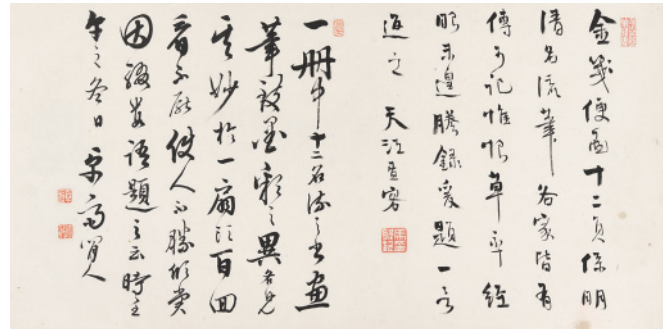 金箋便面十二頁係明
清名流筆各家皆有
傳可記惟恨草率經
眼未遑謄錄爰題一言
返之 天江
一冊中十二名流之書畫
筆致墨彩之異各見
其妙於一扇頭百回
看不厭使人不勝欣賞
因綴蕪語題之云時壬
午之冬日